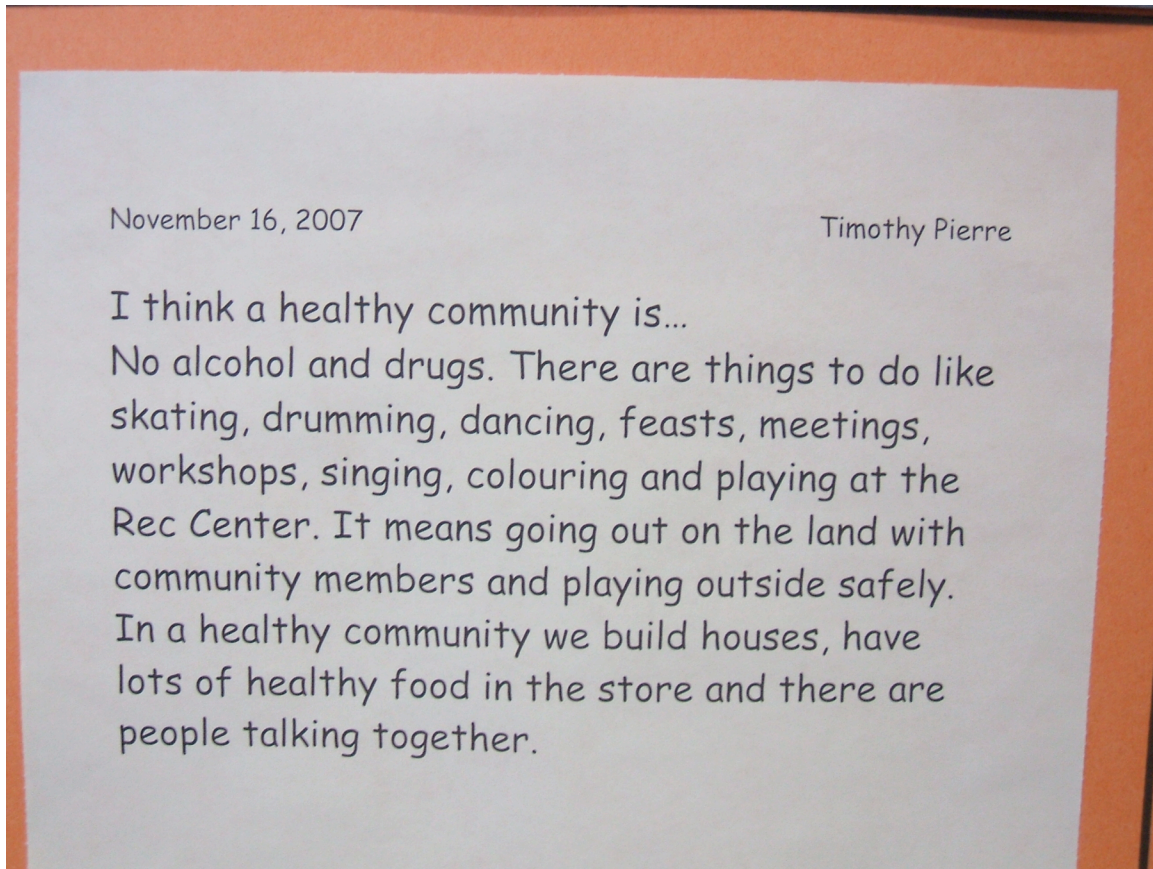 November 16, 2007 Timothy Pierre
I think a healthy community is...
No alcohol and drugs. There are things to do like
skating, drumming, dancing, feasts, meetings,
workshops, singing, colouring and playing at the
Rec Center. It means going out on the land with
community members and playing outside safely.
In a healthy community we build houses, have
lots of healthy food in the store and there are
people talking together.